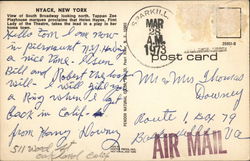 NYACK, NEW YORK
View of South Broadway looking north. Tappan Zee
Playhouse marquee proclaims that Helen Hayes, First
Lady of the Theatre, takes the lead in a play in her
home town.
SPARKILL
MAR
28
AM
1973
post card
Hello Tom I am now
in piermount NY Having
a nice time. Seen
Bill and Robert the last
will give you
a Ring when I get
back in Calif
from Harry Downey
511 Wood St
Oakland Calif
Mr & Mrs Thomas
Downey
Route 1, Box 79
AIR MAIL